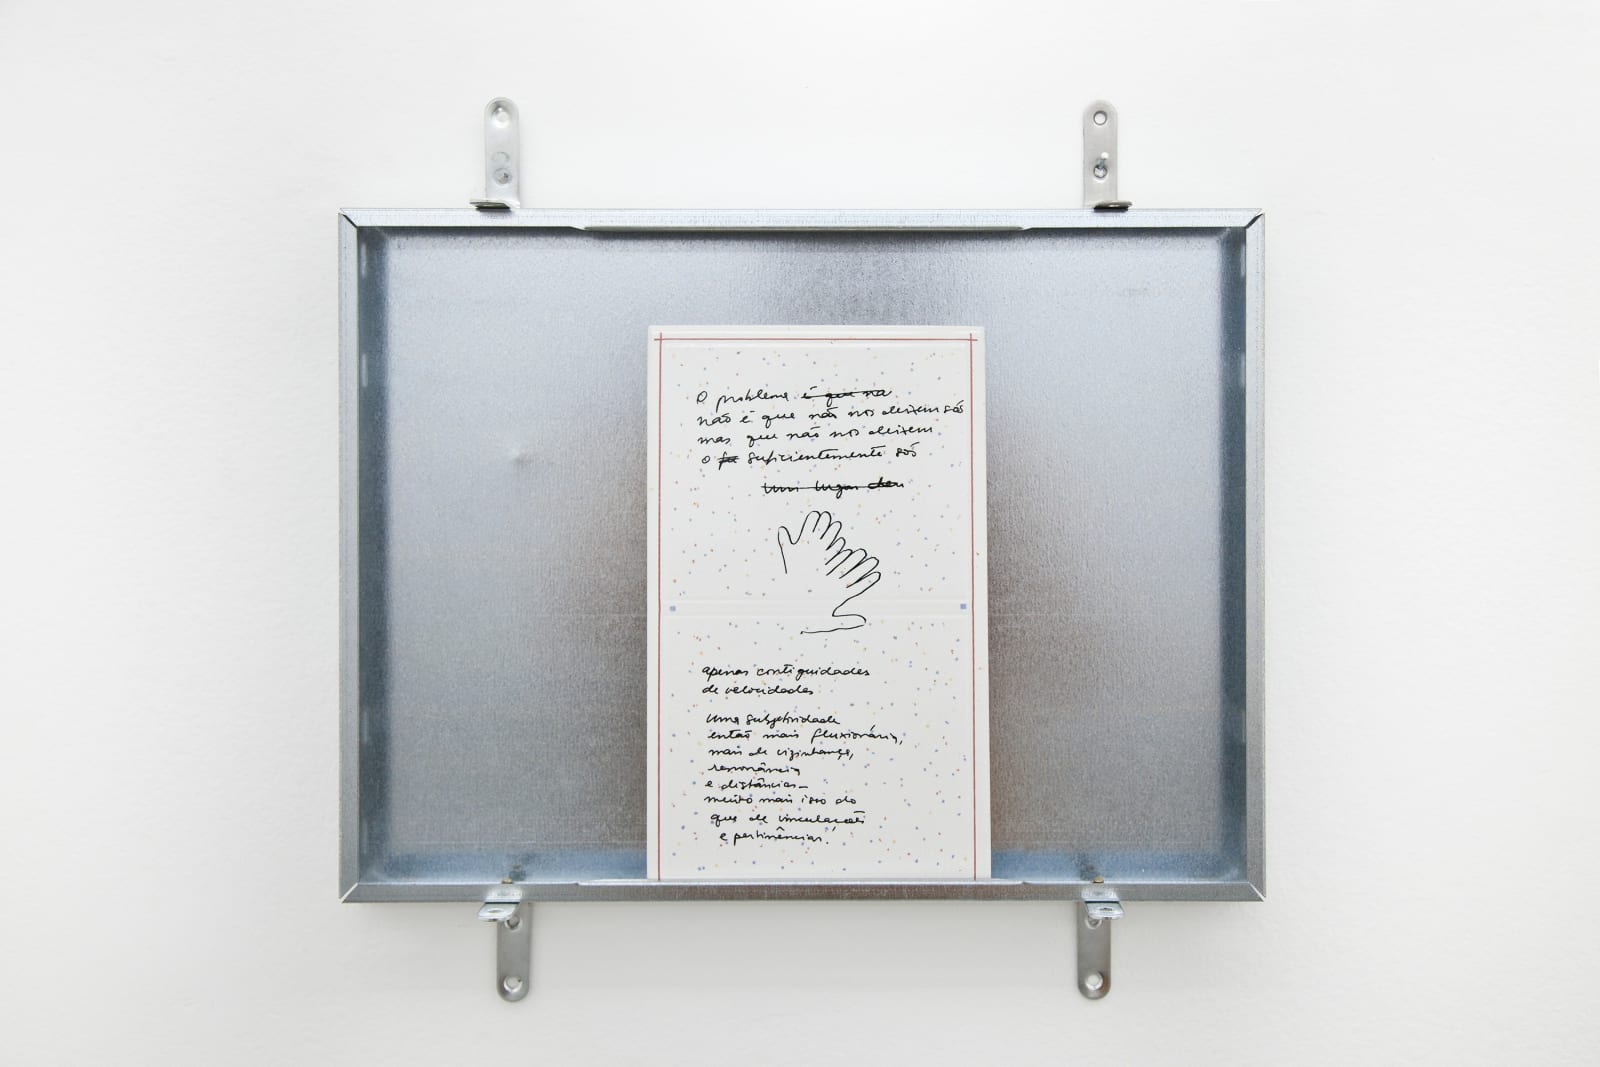 O problema é que na
não é que não nos deixem sós
mas que não nos deixem
o su suficientemente sós
um lugar
apenas contiguidades
de velocidades
Uma subjetividade
então mais fluxionária,
mais de vizinhança,
ressonância
e distâncias_
muito mais isso do
que de vinculações
e pertinências.